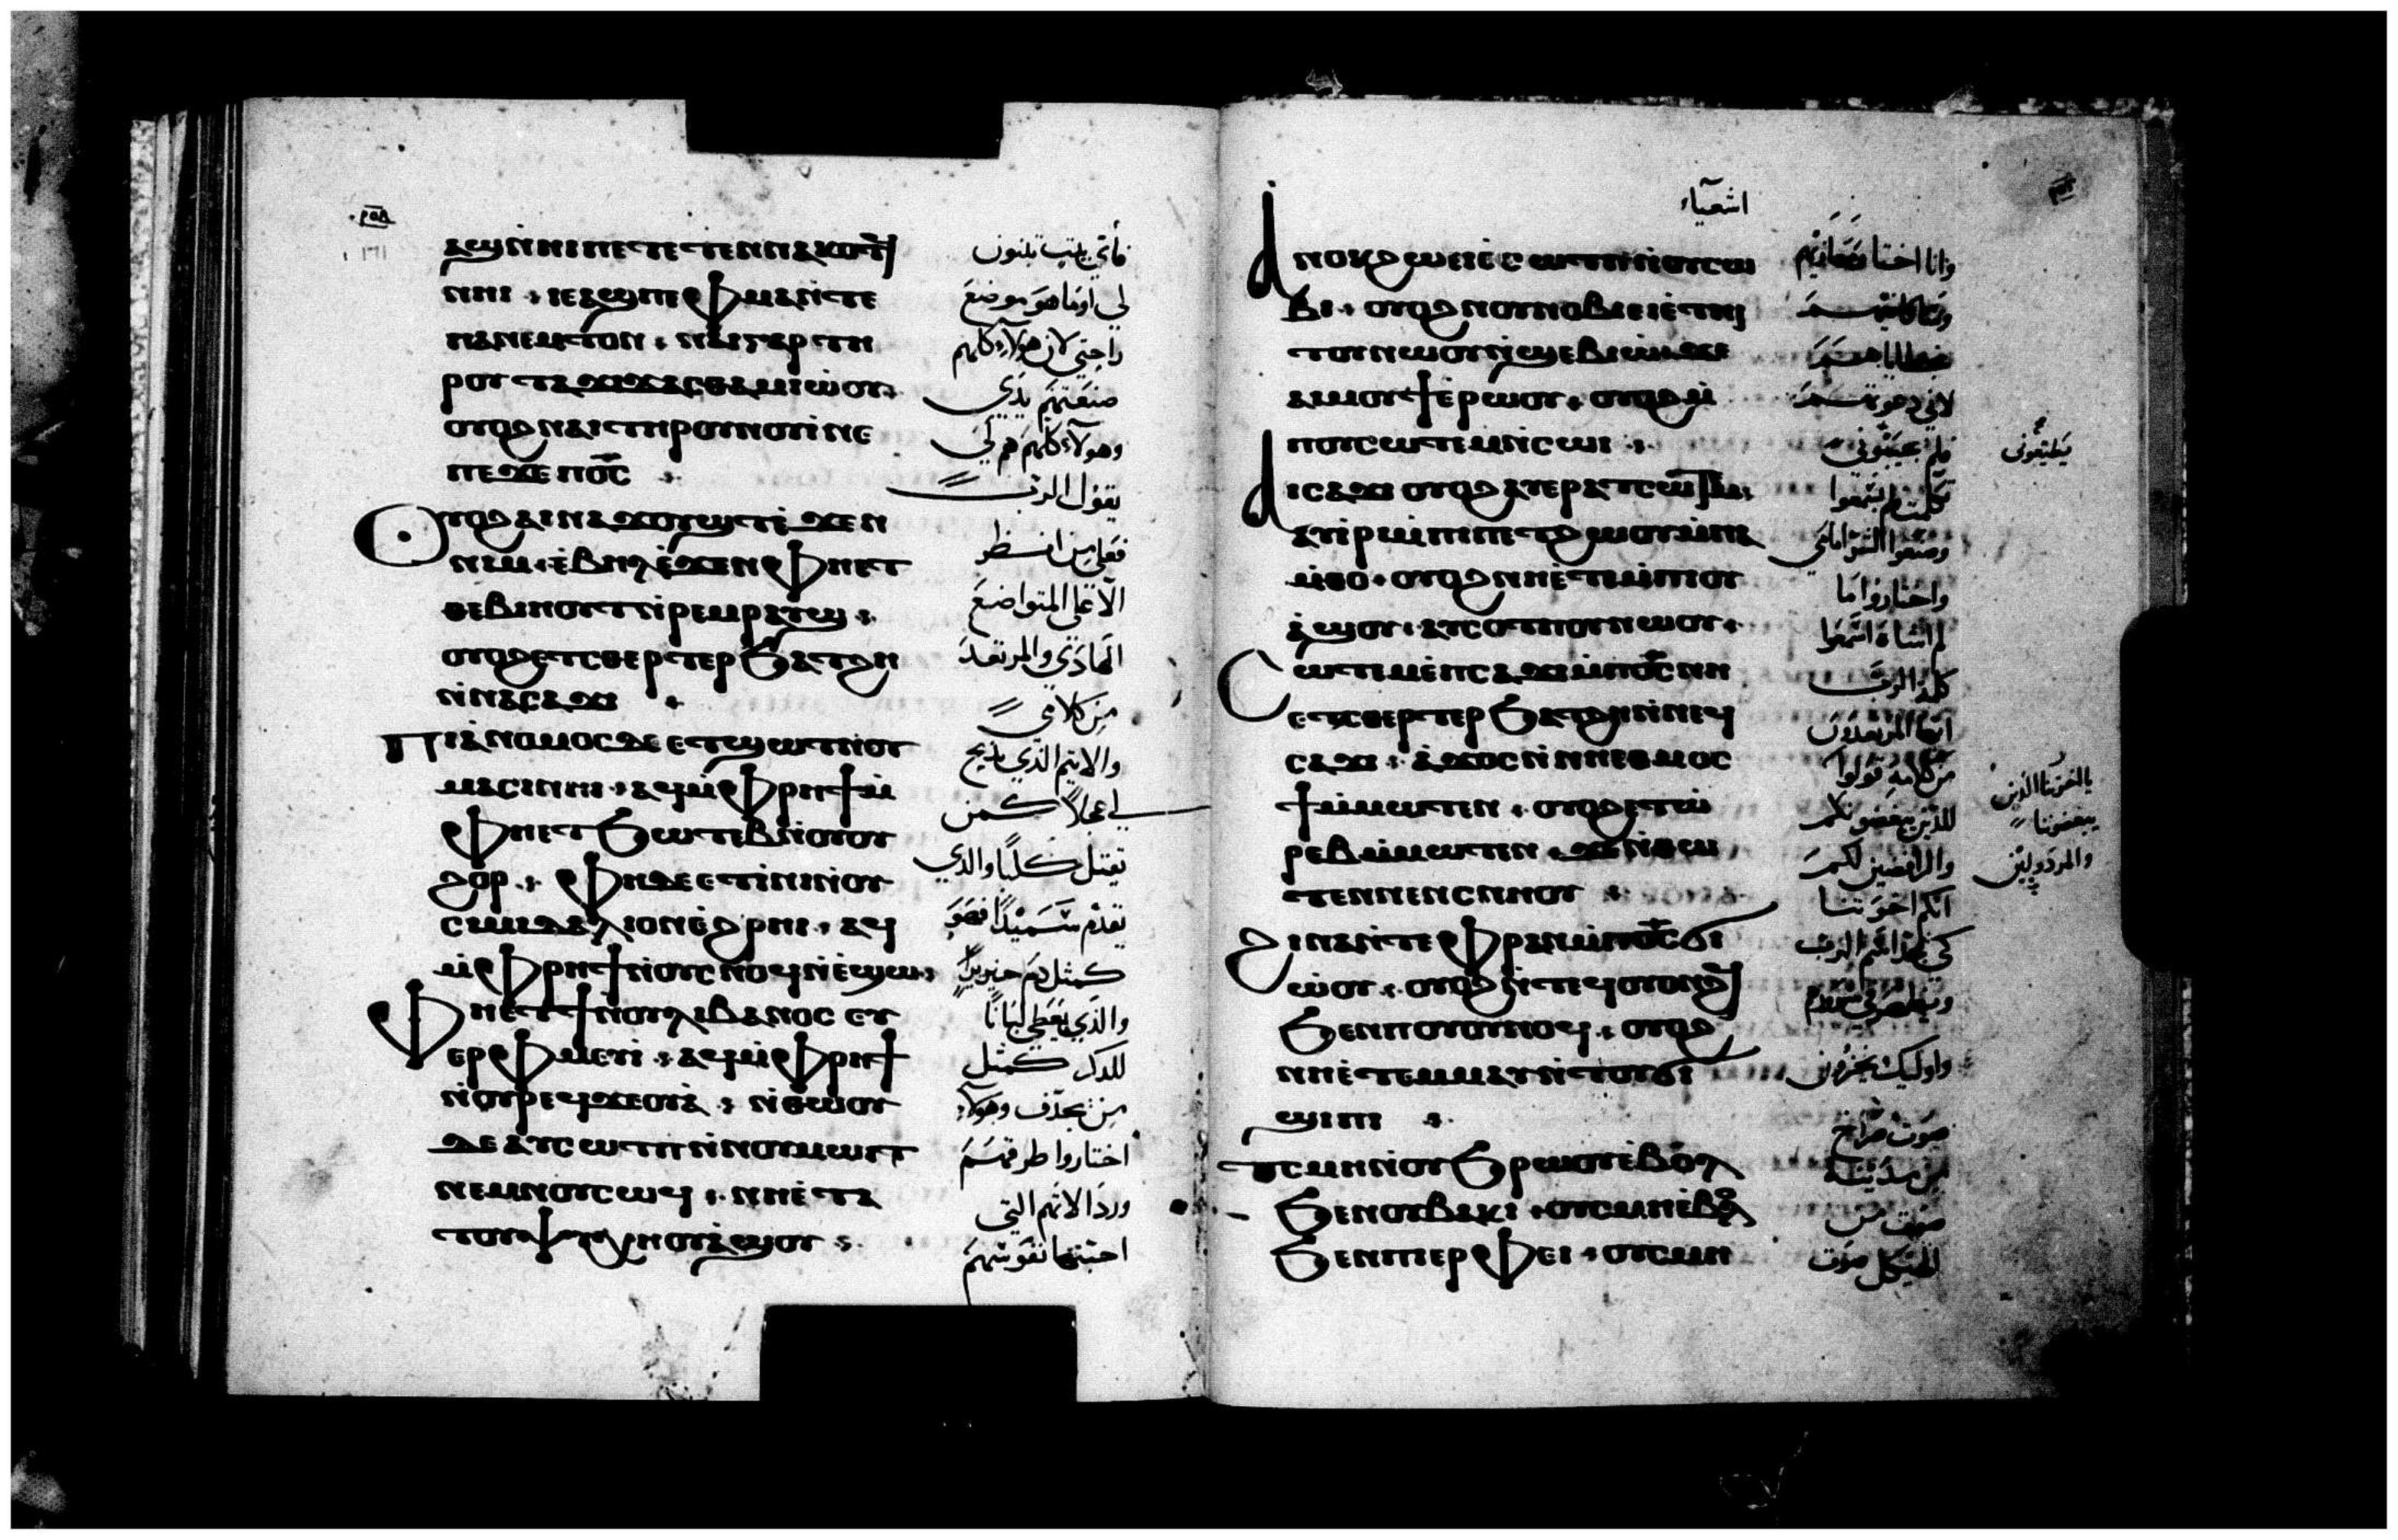 ⲁϣ ⲛ̀ⲛⲓ ⲡⲉⲧⲉⲧⲉⲛⲛⲁⲕⲟⲧϥ
ⲛⲏⲓ ⲓⲉ ⲁϣ ⲡⲉ ⲫⲙⲁ ⲛ̀ⲧⲉ
ⲡⲁⲙ̀ⲧⲟⲛ ⲛⲁⲓ ⲅⲁⲣ ⲧⲏ
ⲣⲟⲩ ⲧⲁϫⲓϫ ⲁⲥⲑⲁⲙⲓⲱⲟⲩ
ⲟⲩⲟϩ ⲛⲁⲓ ⲧⲏⲣⲟⲩ ⲛⲟⲩⲓ ⲛⲉ
ⲡⲉϫⲉ ⲡⲟ̅ⲥ̅
ⲟⲩⲟϩ ⲁⲓⲛⲁϫⲟⲩϣⲧ ⲉ̀ϫⲉⲛ
ⲛⲓⲙ ⲉ̀ⲃⲏⲗ ⲉ̀ϫⲉⲛ ⲫⲏⲉⲧ
ⲑⲉⲃⲓⲏⲟⲩⲧ ⲛ̀ⲣⲉⲙⲣⲁⲩϣ
ⲟⲩⲟϩ ⲉⲧⲥⲑⲉⲣⲧⲉⲣ ϧⲁⲧϩⲏ
ⲛ̀ⲛⲁⲥⲁϫⲓ
ⲡⲓⲁⲛⲟⲙⲟⲥ ⲇⲉ ⲉⲧϣⲱⲧ ⲛ̀ⲟⲩ
ⲙⲁⲥⲓ ⲛⲏⲓ ⲁϥⲙ̀ⲫⲣⲏϯ ⲙ̀
ⲫⲏⲉⲧϧⲱⲧⲉⲃ ⲛ̀ⲟⲩⲟⲩ
ϩⲟⲣ ⲫⲏ ⲇⲉ ⲉⲧⲓⲛⲓ ⲛ̀ⲟⲩ
ⲥⲓⲙⲓⲇⲁⲗⲓⲟⲛ ⲉ̀ϩⲣⲏⲓ ⲁϥ
ⲙ̀ⲫⲣⲏϯ ⲛ̀ⲟⲩⲥⲛⲟϥ ⲛ̀ⲉϣⲱ
ⲫⲏⲉⲧϯ ⲛ̀ⲟⲩⲗⲓⲃⲁⲛⲟⲥ ⲉⲩ
ⲉⲣⲫⲙⲉⲩⲓ ⲁϥⲙ̀ⲫⲣⲏϯ
ⲛ̀ⲟⲩⲣⲉϥϫⲉⲟⲩⲁ̀ ⲛ̀ⲑⲱⲟⲩ
ⲇⲉ ⲁⲩⲥⲱⲧⲡ ⲛ̀ⲛⲟⲩⲙⲱⲓⲧ
ⲛⲉⲙ ⲛⲟⲩⲥⲱϥ ⲛⲏⲉ̀ⲧⲁ
ⲧⲟⲩⲯⲩⲭⲏ ⲟⲩⲁϣⲟⲩ
لي اوما هو موضع
راحتي لان هولآء كلهم
صنعتهم يدي
وهولآء كلهم هم لي
يقول الرب
فعلي من انظر
الا علي المتواضع
الهادي والمرتعد
من كلامي
والاثيم الذي يذبح
لي عجلاً كمن
يقتل كلبًا والذي
يقدم سميدًا فهو
كمثل دم خنزير
والذي يعطي لبانًا
للذكر كمثل
من يجدف وهولآء
اختاروا طرقهم
ورذالاتهم التي
احبتها نفوسهم
اشعياء
ⲁⲛⲟⲕ ϩⲱ ⲉⲓⲉ̀ⲥⲱⲧⲡ ⲛ̀ⲟⲩⲥⲱ
ⲃⲓ ⲟⲩⲟϩ ⲛⲟⲩⲛⲟⲃⲓ ⲉⲓⲉ̀ⲧⲏ
ⲓⲧⲟⲩ ⲛⲱⲟⲩ ⲛ̀ϣⲉⲃⲓⲱ̀ ϫⲉ
ⲁⲓⲙⲟⲩϯ ⲉ̀ⲣⲱⲟⲩ ⲟⲩⲟϩ ⲙ̀
ⲡⲟⲩⲥⲱⲧⲉⲙ ⲛ̀ⲥⲱⲓ
ⲁⲓⲥⲁϫⲓ ⲟⲩⲟϩ ⲁⲩⲉⲣⲁⲧⲥⲱⲧⲉⲙ
ⲁⲩⲓ̀ⲣⲓ ⲙ̀ⲡⲓⲡⲉⲧϩⲱⲟⲩ ⲙ̀ⲡⲁ
ⲙ̀ⲑⲟ ⲟⲩⲟϩ ⲛⲏⲉ̀ⲧⲉ ⲙ̀ⲡⲓⲟⲩ
ⲁ̀ϣⲟⲩ ⲁⲩⲥⲟⲧⲡⲟⲩ ⲛⲱⲟⲩ
ⲥⲱⲧⲉⲙ ⲉ̀ⲡⲥⲁϫⲓ ⲙ̀ⲡⲟ̅ⲥ̅ ⲛⲏ
ⲉⲧⲥⲑⲉⲣⲧⲉⲣ ϧⲁⲧϩⲏ ⲙ̀ⲡⲉϥ
ⲥⲁϫⲓ ⲁ̀ϫⲟⲥ ⲛ̀ⲛⲏⲉⲑⲙⲟⲥ
ϯ ⲙ̀ⲙⲱⲧⲉⲛ ⲟⲩⲟϩ ⲉⲧⲱ̀
ⲣⲉⲃ ⲙ̀ⲙⲱⲧⲉⲛ ϫⲉ ⲛ̀ⲑⲱ
ⲧⲉⲛ ⲛⲉⲛⲥⲛⲏⲟⲩ
ϩⲓⲛⲁ ⲛ̀ⲧⲉ ⲫⲣⲁⲛ ⲙ̀ⲡⲟ̅ⲥ̅ ϭⲓ
ⲱ̀ⲟⲩ ⲟⲩⲟϩ ⲛ̀ⲧⲉϥⲟⲩⲟⲛϩϥ
ϧⲉⲛ ⲡⲟⲩⲟⲩⲛⲟϥ ⲟⲩⲟϩ
ⲛⲏⲉ̀ⲧⲉⲙⲙⲁⲩ ⲛ̀ⲧⲟⲩϭⲓ
ϣⲓⲡⲓ
ⲧ̀ⲥⲙⲏ ⲛ̀ⲟⲩϧⲣⲱⲟⲩ ⲉ̀ⲃⲟⲗ
ϧⲉⲛ ⲟⲩⲃⲁⲕⲓ ⲟⲩⲥⲙⲏ ⲉ̀ⲃⲟⲗ
ϧⲉⲛ ⲡⲓⲉⲣⲫⲉⲓ ⲟⲩⲥⲙⲏ
خطاياهم
لاني دعوتهم
تكلمت فلم يسمعوا
واختاروا ما
لم اشاء اسمعوا
كلمة الرب
ايها المرتعدون
من كلامه قولوا
للذين يبغضونكم
والرافضين لكم
انكم اخوتنا
واوليك يخزون
صوت صراخ
من مدينة
صوت من
الهيكل صوت